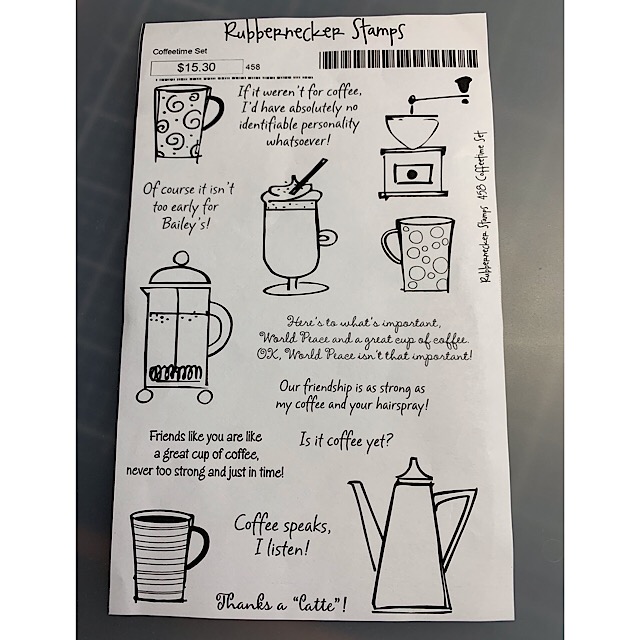 Rubbernecker Stamps
Coffeetime Set
$15.30
458
If it weren't for coffee,
I'd have absolutely no
identifiable personality
whatsoever!
Of course it isn't
too early for
Bailey's!
Rubbernecker Stamps 458 Coffeetime Set
Here's to what's important,
World Peace and a great cup of coffee.
OK, World Peace isn't that important!
Our friendship is as strong as
my coffee and your hairspray!
Friends like you are like
a great cup of coffee,
never too strong and just in time!
Is it coffee yet?
Coffee speaks,
I listen!
Thanks a "Latte"!